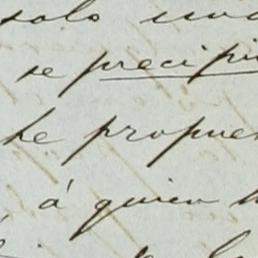 solo
se precipi
he propues
á quien